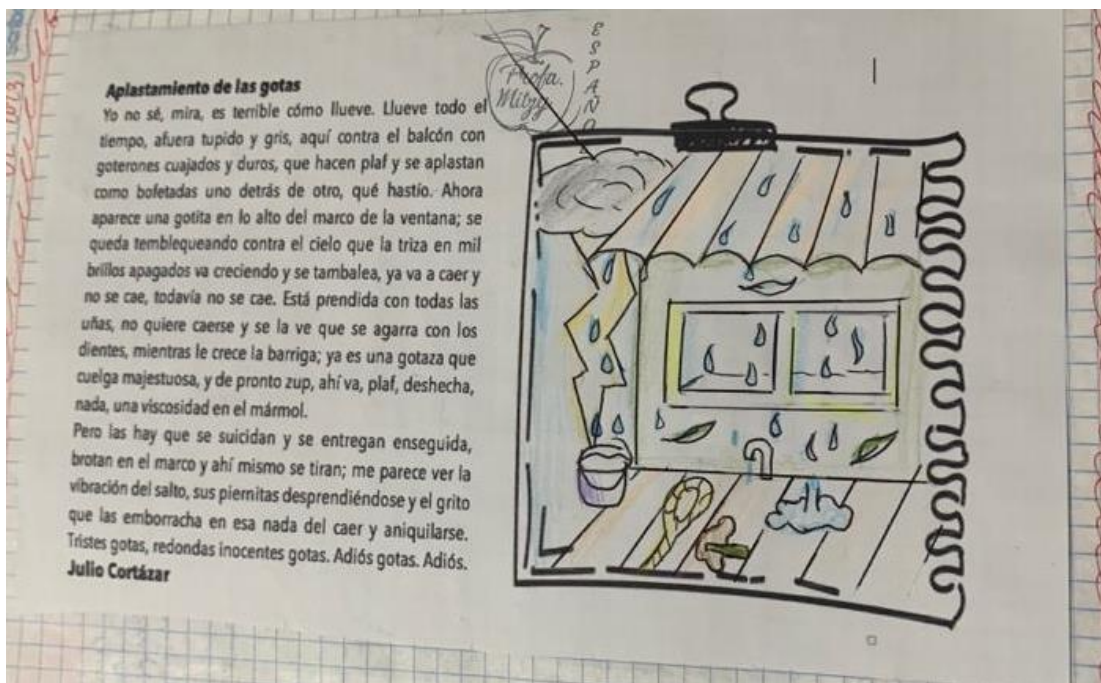 Aplastamiento de las gotas
Yo no sé, mira, es terrible cómo llueve. Llueve todo el
tiempo, afuera tupido y gris, aquí contra el balcón con
goterones cuajados y duros, que hacen plaf y se aplastan
como bofetadas uno detrás de otro, qué hastío. Ahora
aparece una gotita en lo alto del marco de la ventana; se
queda temblequeando contra el cielo que la triza en mil
brillos apagados va creciendo y se tambalea, ya va a caer y
no se cae, todavía no se cae. Está prendida con todas las
uñas, no quiere caerse y se la ve que se agarra con los
dientes, mientras le crece la barriga; ya es una gotaza que
cuelga majestuosa, y de pronto zup, ahí va, plaf, deshecha,
nada, una viscosidad en el mármol.
Pero las hay que se suicidan y se entregan enseguida,
brotan en el marco y ahí mismo se tiran; me parece ver la
vibración del salto, sus piernitas desprendiéndose y el grito
que las emborracha en esa nada del caer y aniquilarse.
Tristes gotas, redondas inocentes gotas. Adiós gotas. Adiós.
Julio Cortázar
Profa.
Mitzy
ESPAÑO